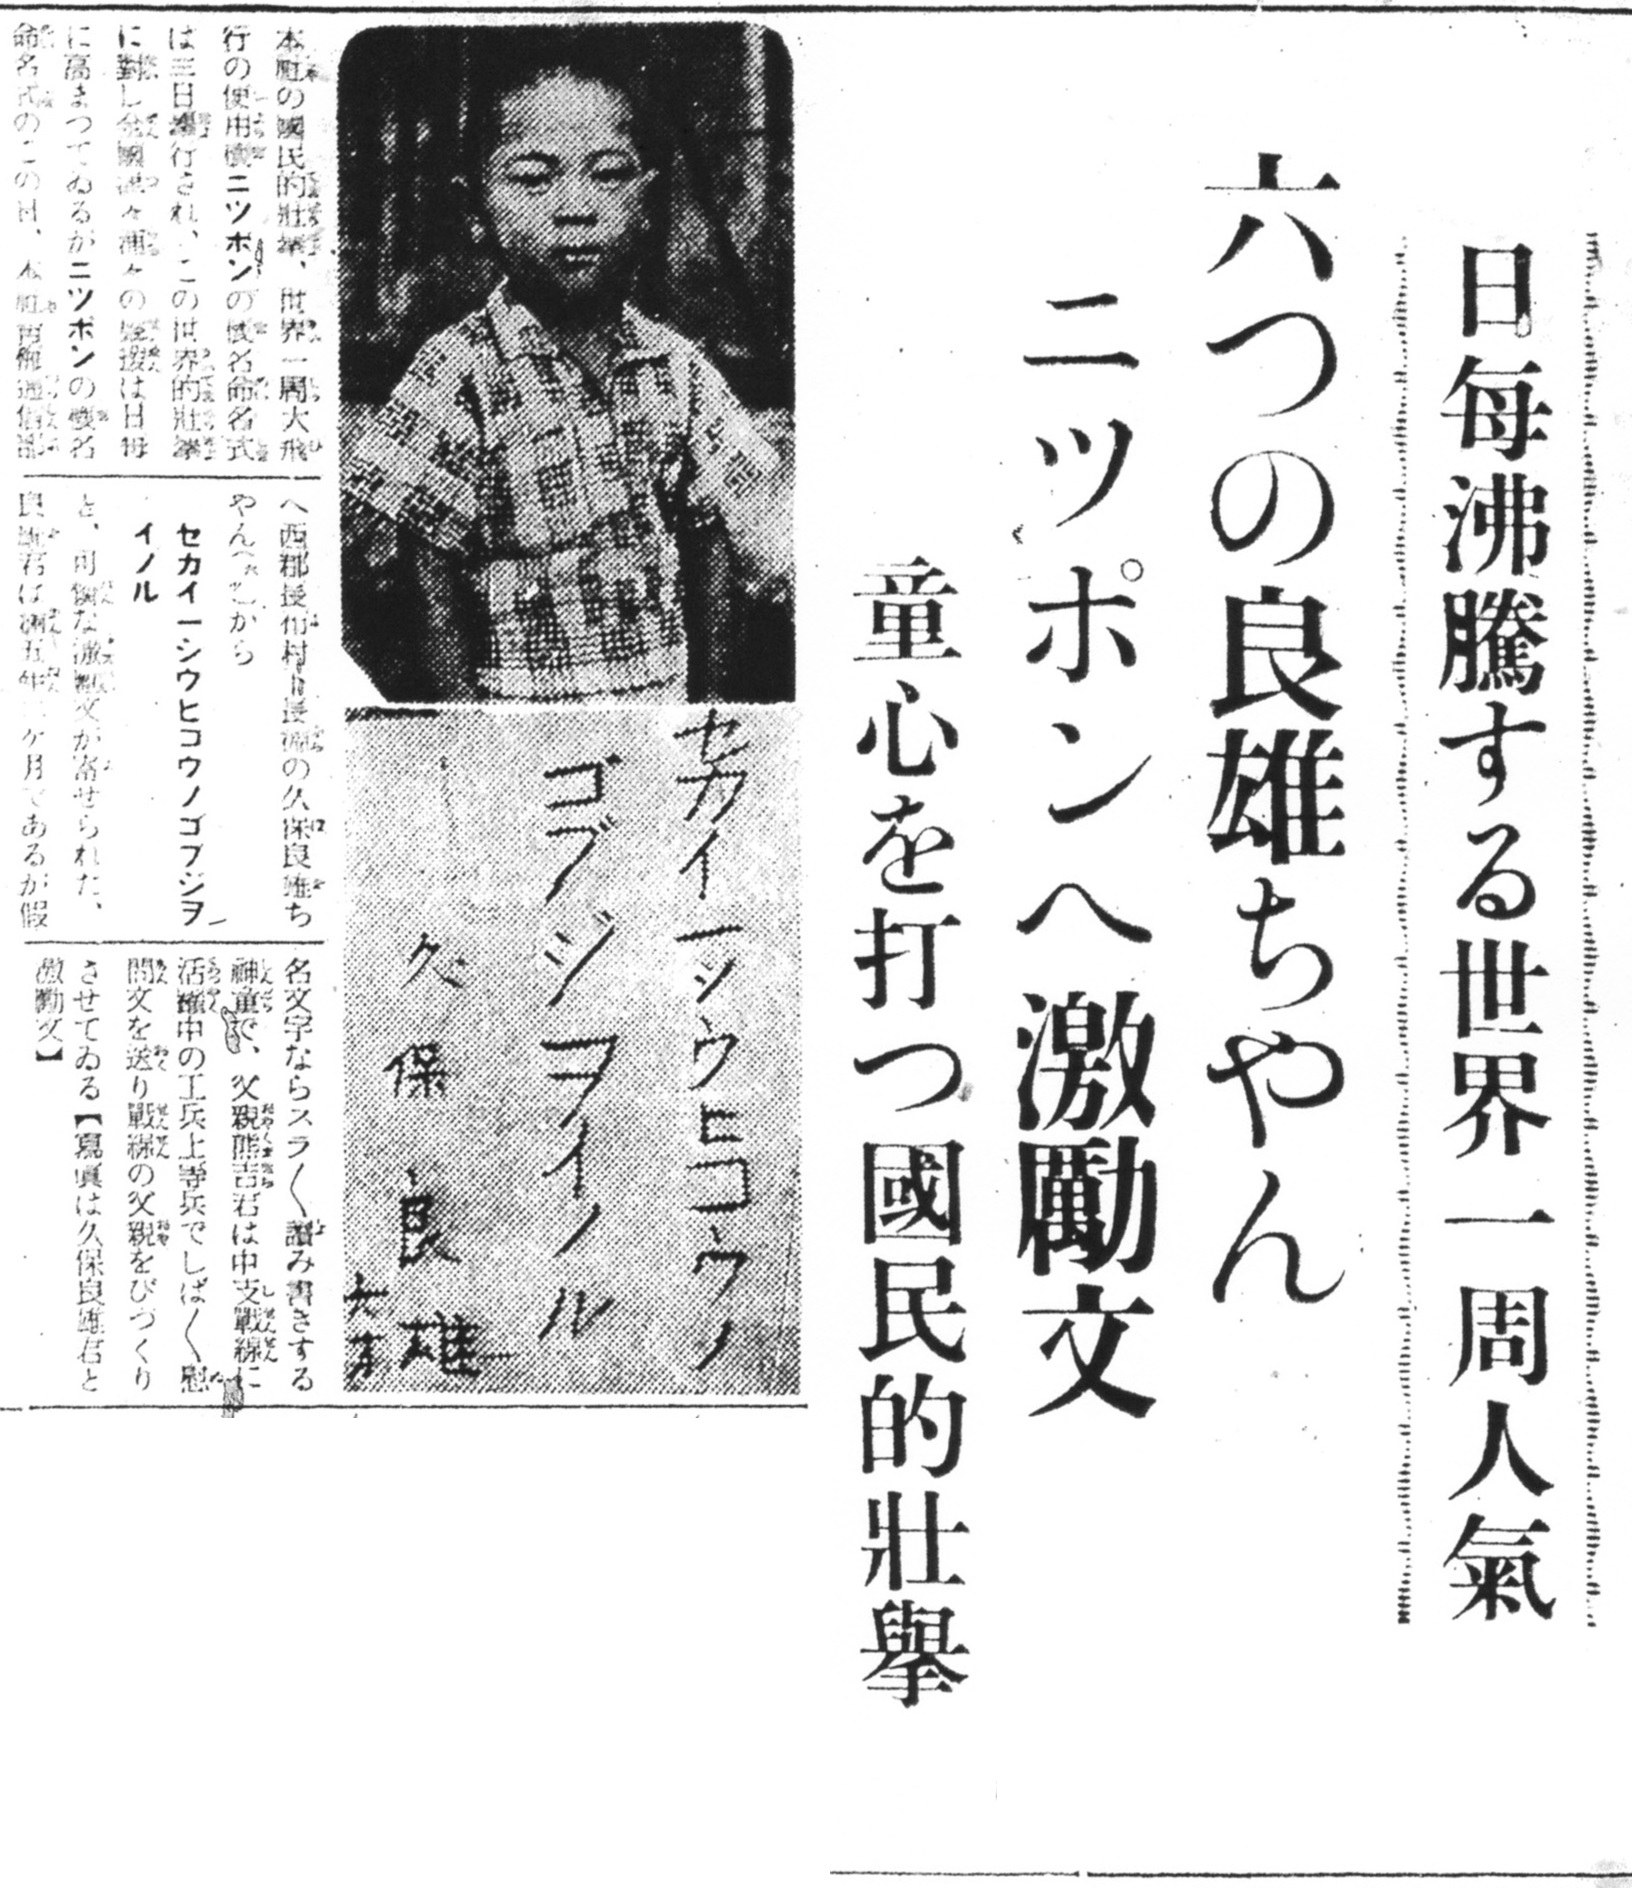 日每沸騰する世界一周人氣
六つの良雄ちやん
ニツポンへ激勵文
童心を打つ國民的壯擧
セカイ一ッウヒコウノ
ゴブジヲイノル
久保良雄
六才
本社の國民的壯擧、世界一周大飛
行の使用機ニツポンの機名命名式
は三日擧行され、この世界的壯擧
に對し全國津々浦々の聲援は日每
に高まつてゐるがニツポンの機名
命名式のこの日、本社
へ西郡長 村 長 の久保良雄ち
やん から
セカイ一シウヒコウノゴブジヲ
イノル
と、可憐な激勵文が寄せられた、
良雄君は滿五年 ケ月であるが假
名文字ならスラ〱讀み書きする
神童で、父親熊吉君は中支戰線に
活躍中の工兵上等兵でしば〱慰
問文を送り戰線の父親をびつくり
させてゐる【寫眞は久保良雄君と
激勵文】